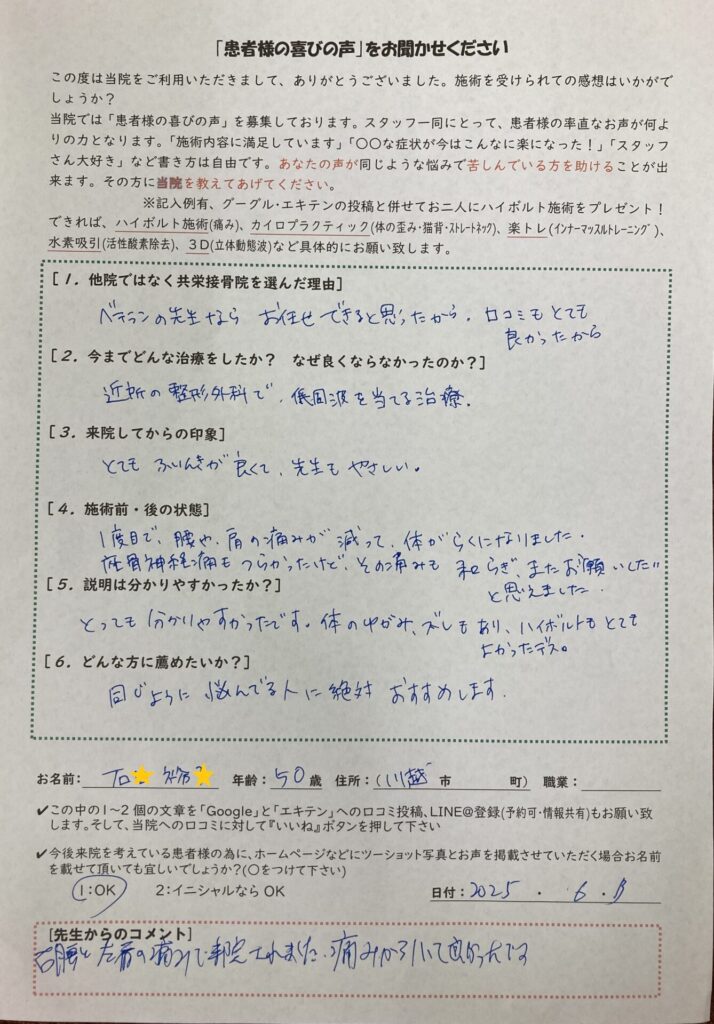 「患者様の喜びの声」をお聞かせください
この度は当院をご利用いただきまして、ありがとうございました。施術を受けられての感想はいかがで
しょうか？
当院では「患者様の喜びの声」を募集しております。スタッフ一同にとって、患者様の率直なお声が何よ
りの力となります。「施術内容に満足しています」「〇〇な症状が今はこんなに楽になった！」「スタッフ
さん大好き」など書き方は自由です。あなたの声が同じような悩みで苦しんでいる方を助けることが出
来ます。その方に当院を教えてあげてください。
※記入例有、グーグル・エキテンの投稿と併せてお二人にハイボルト施術をプレゼント！
できれば、ハイボルト施術(痛み)、カイロプラクティック(体の歪み・猫背・ストレートネック)、楽トレ(インナーマッスルトレーニング)、
水素吸引(活性酸素除去)、３D(立体動態波)など具体的にお願い致します。
[１．他院ではなく共栄接骨院を選んだ理由]
ベテランの先生なら お任せできると思ったから. 口コミもとても
良かったから
[２．今までどんな治療をしたか？　なぜ良くならなかったのか？]
近所の整形外科で、低周波を当てる治療.
[３．来院してからの印象]
とても ふいんきが良くて、先生もやさしい。
[４．施術前・後の状態]
1度目で、腰や、肩の痛みが減って、体がらくになりました.
座骨神経痛もつらかったけど、その痛みも 和らぎ、またお願いしたい
と思えました.
[５．説明は分かりやすかったか？]
とっても分かりやすかったです。体のゆがみ、ズレもあり、ハイボルトもとても
よかったデス。
[６．どんな方に薦めたいか？]
同じように悩んでる人に絶対おすすめします.
お名前： 年齢：50歳 住所：（川越 市 町） 職業：
✔この中の１～２個の文章を「Google」と「エキテン」への口コミ投稿、LINE@登録(予約可・情報共有)もお願い致
します。そして、当院への口コミに対して『いいね』ボタンを押して下さい
✔今後来院を考えている患者様の為に、ホームページなどにツーショット写真とお声を掲載させていただく場合お名前
を載せて頂いても宜しいでしょうか？(〇をつけて下さい)
１：OK ２：イニシャルなら OK 日付：2025 ・ 6 ・
[先生からのコメント]
右腰と左肩の痛みで来院されました、痛みがひいて良かったです